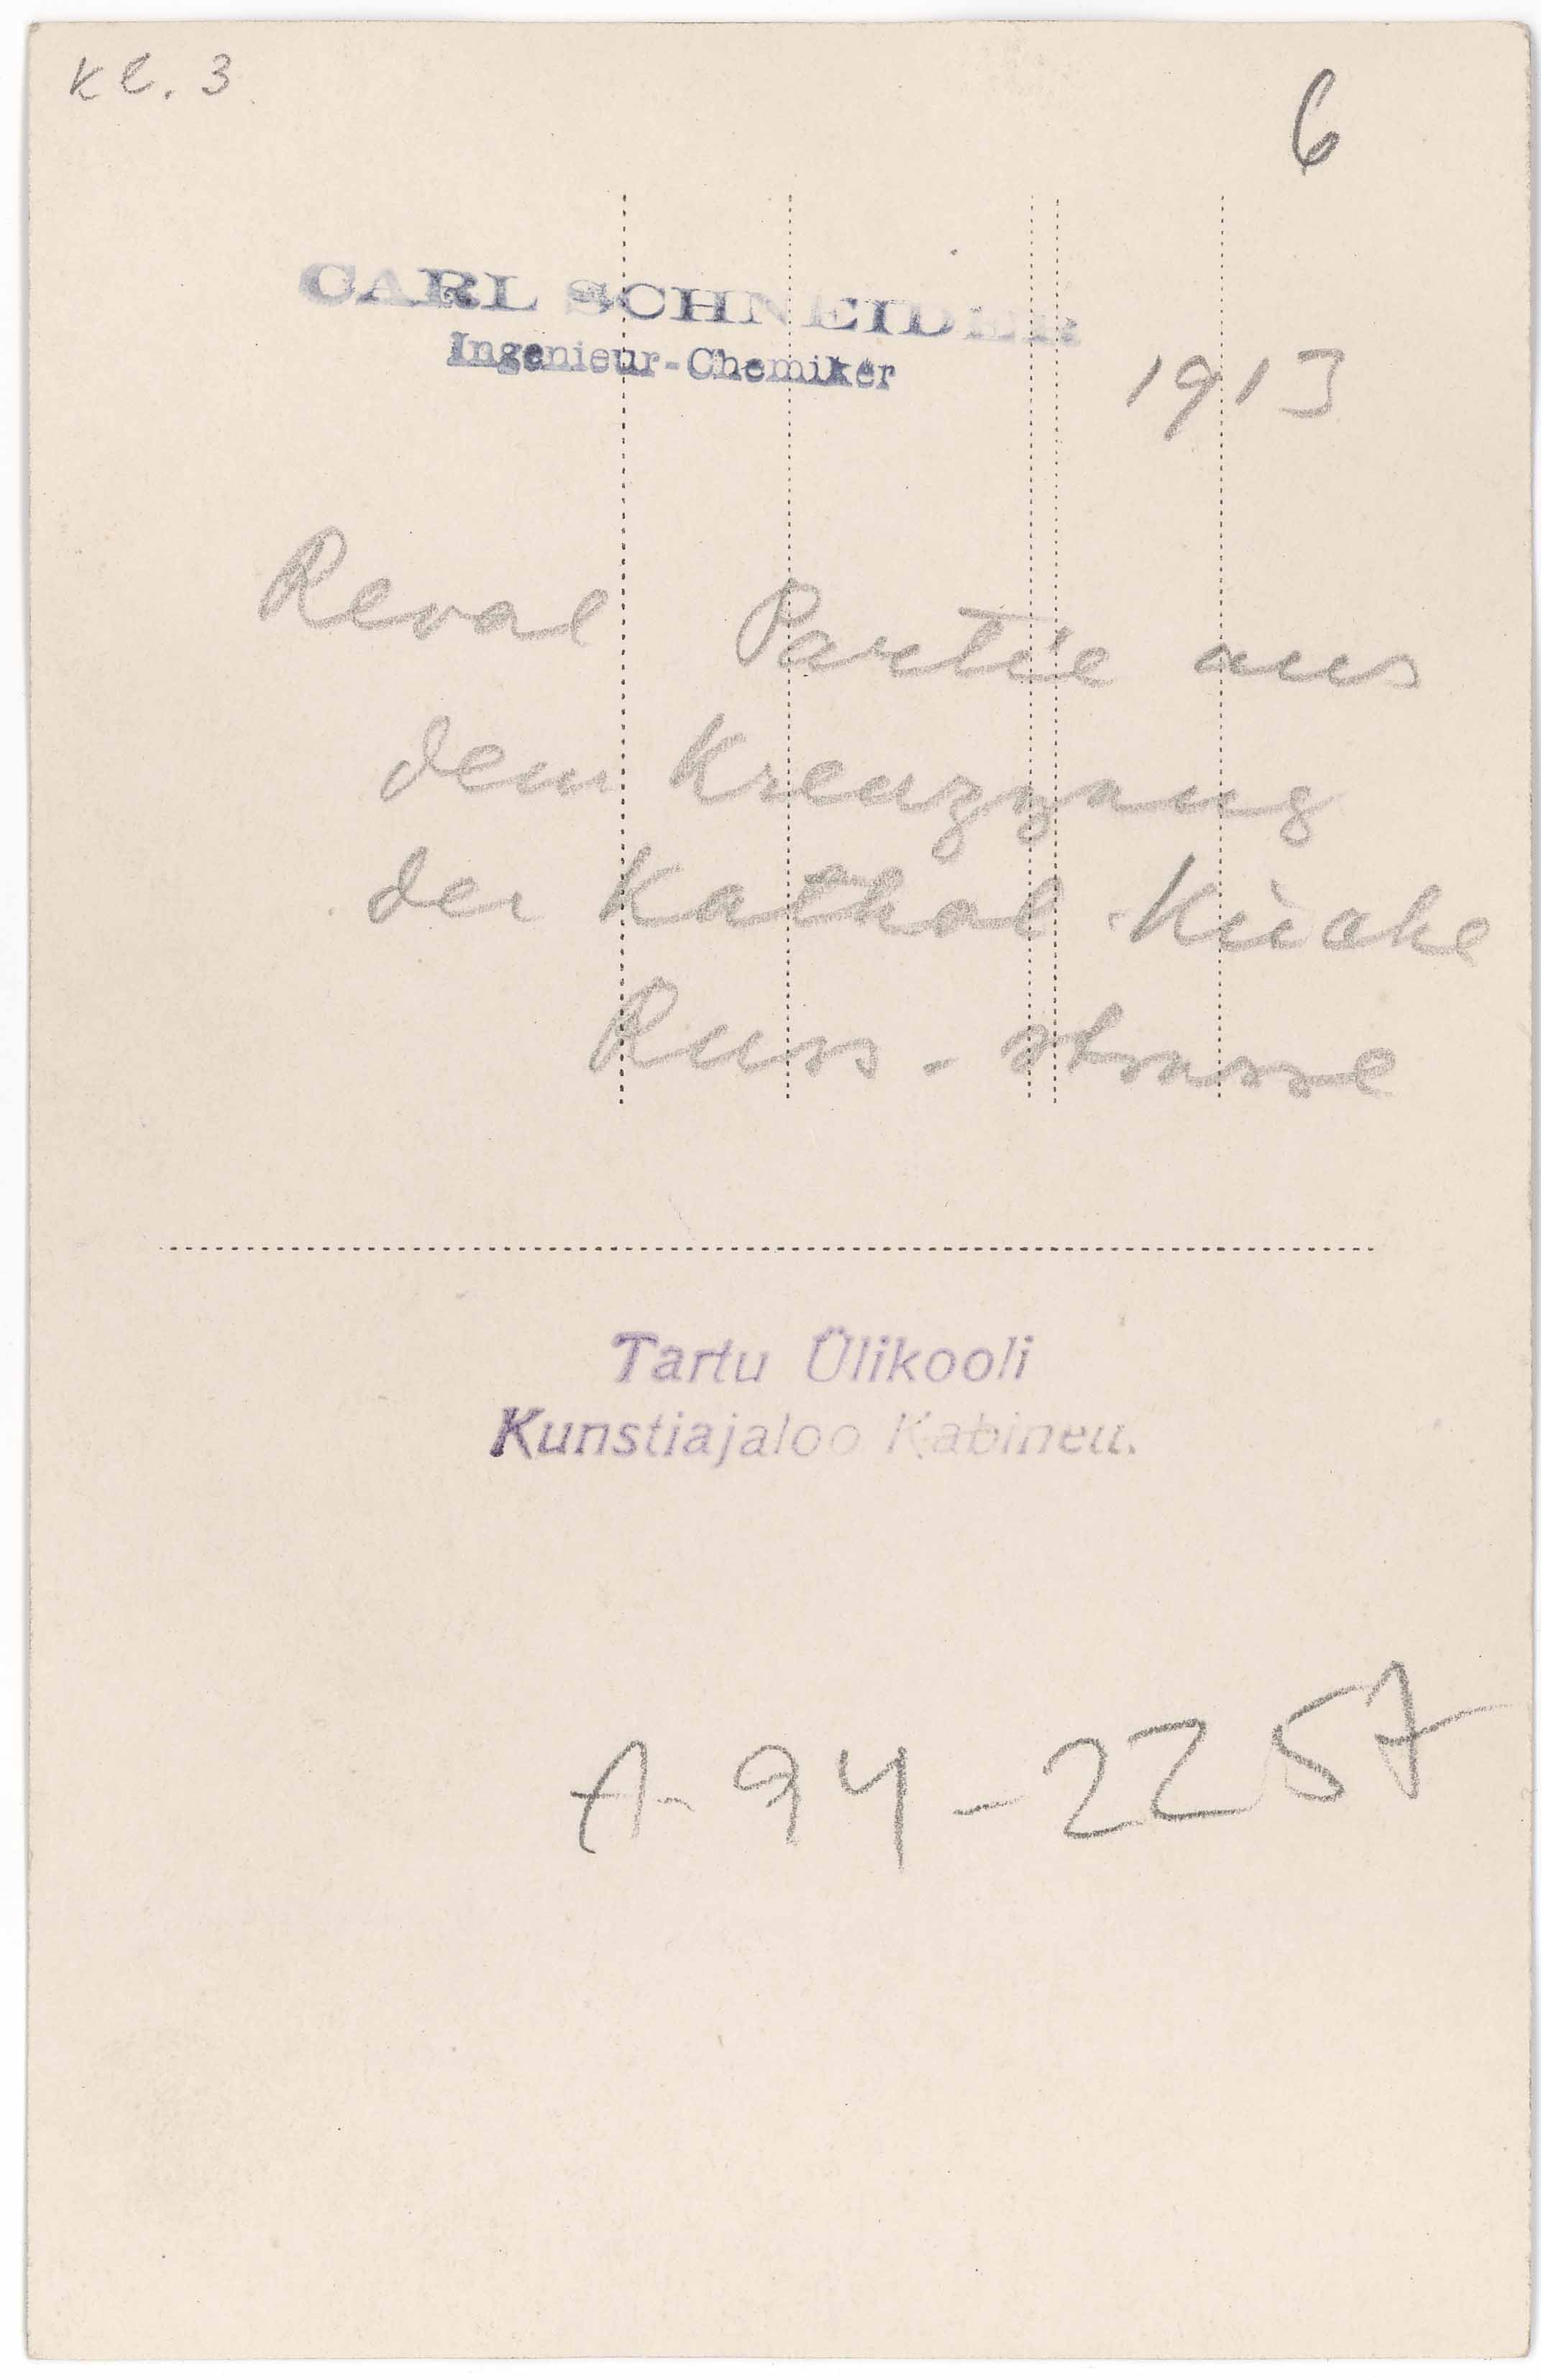 Kl. 3
6
CARL SCHNEIDER
Ingenieur-Chemiker
1913
Reval Partie aus
dem Kreuzgang
der Kathol. Kirche
Russ-strasse
Tartu Ülikooli
Kunstiajaloo Kabinett.
A-94-2257